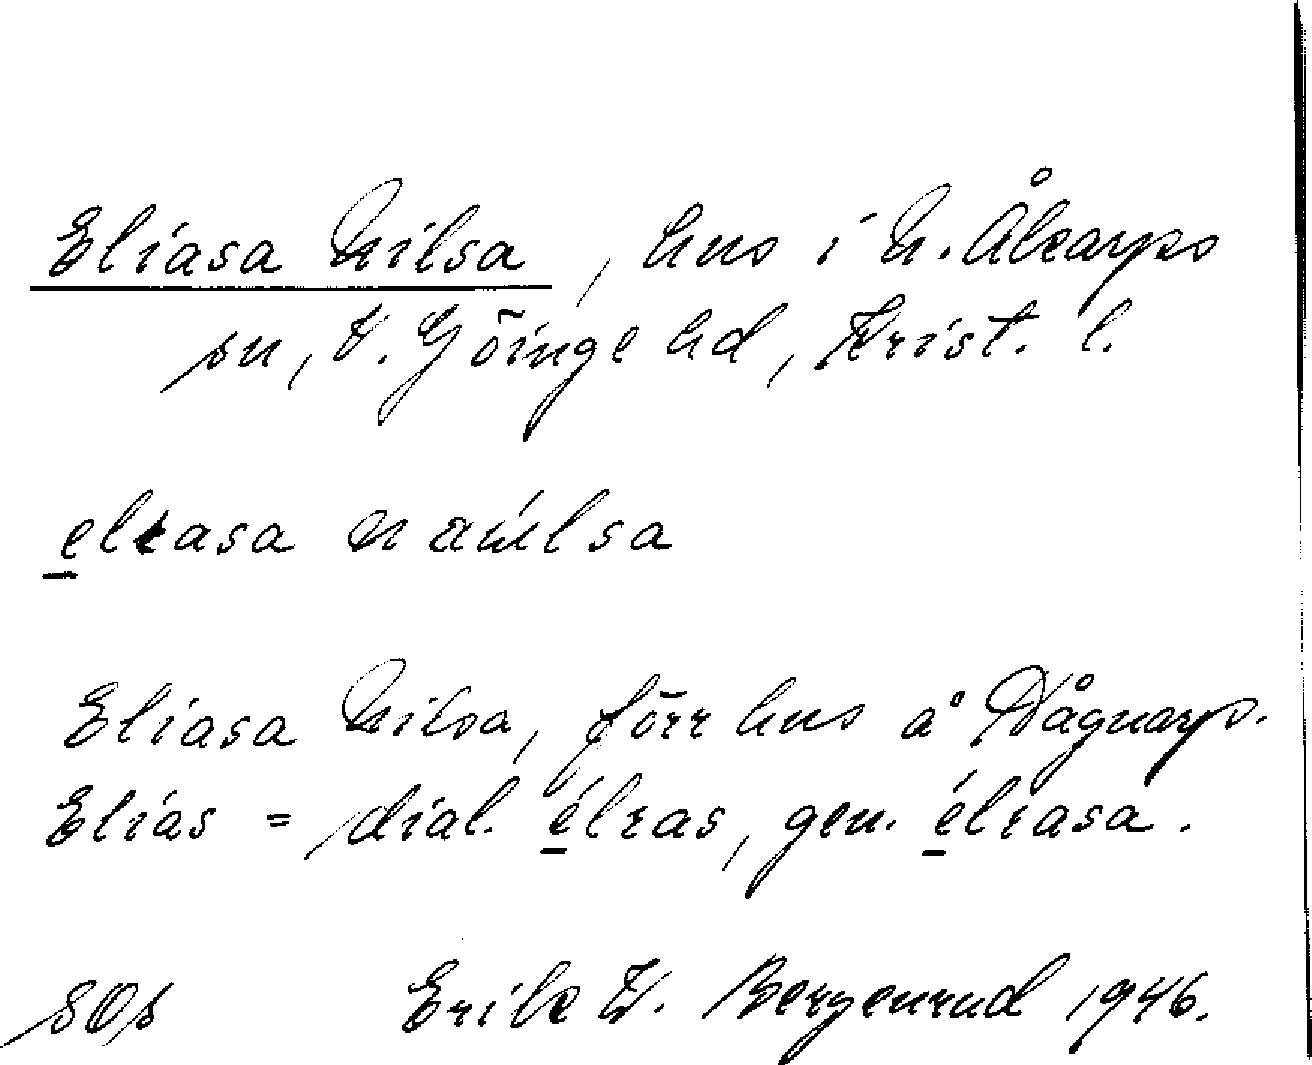 Eliasa Nilsa, hus i N. Åkarps
sn, V. Göinge hd, Krist. l.
elɩasa naíɩlsa
Eliasa Nilsa, förr hus å Vågnarp.
Elias = dial. élɩas, gen. élɩasa.
Erik W. Bergenrud 1946.